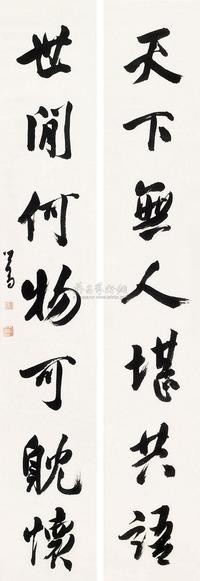 天下無人堪共語
世間何物可貺懷